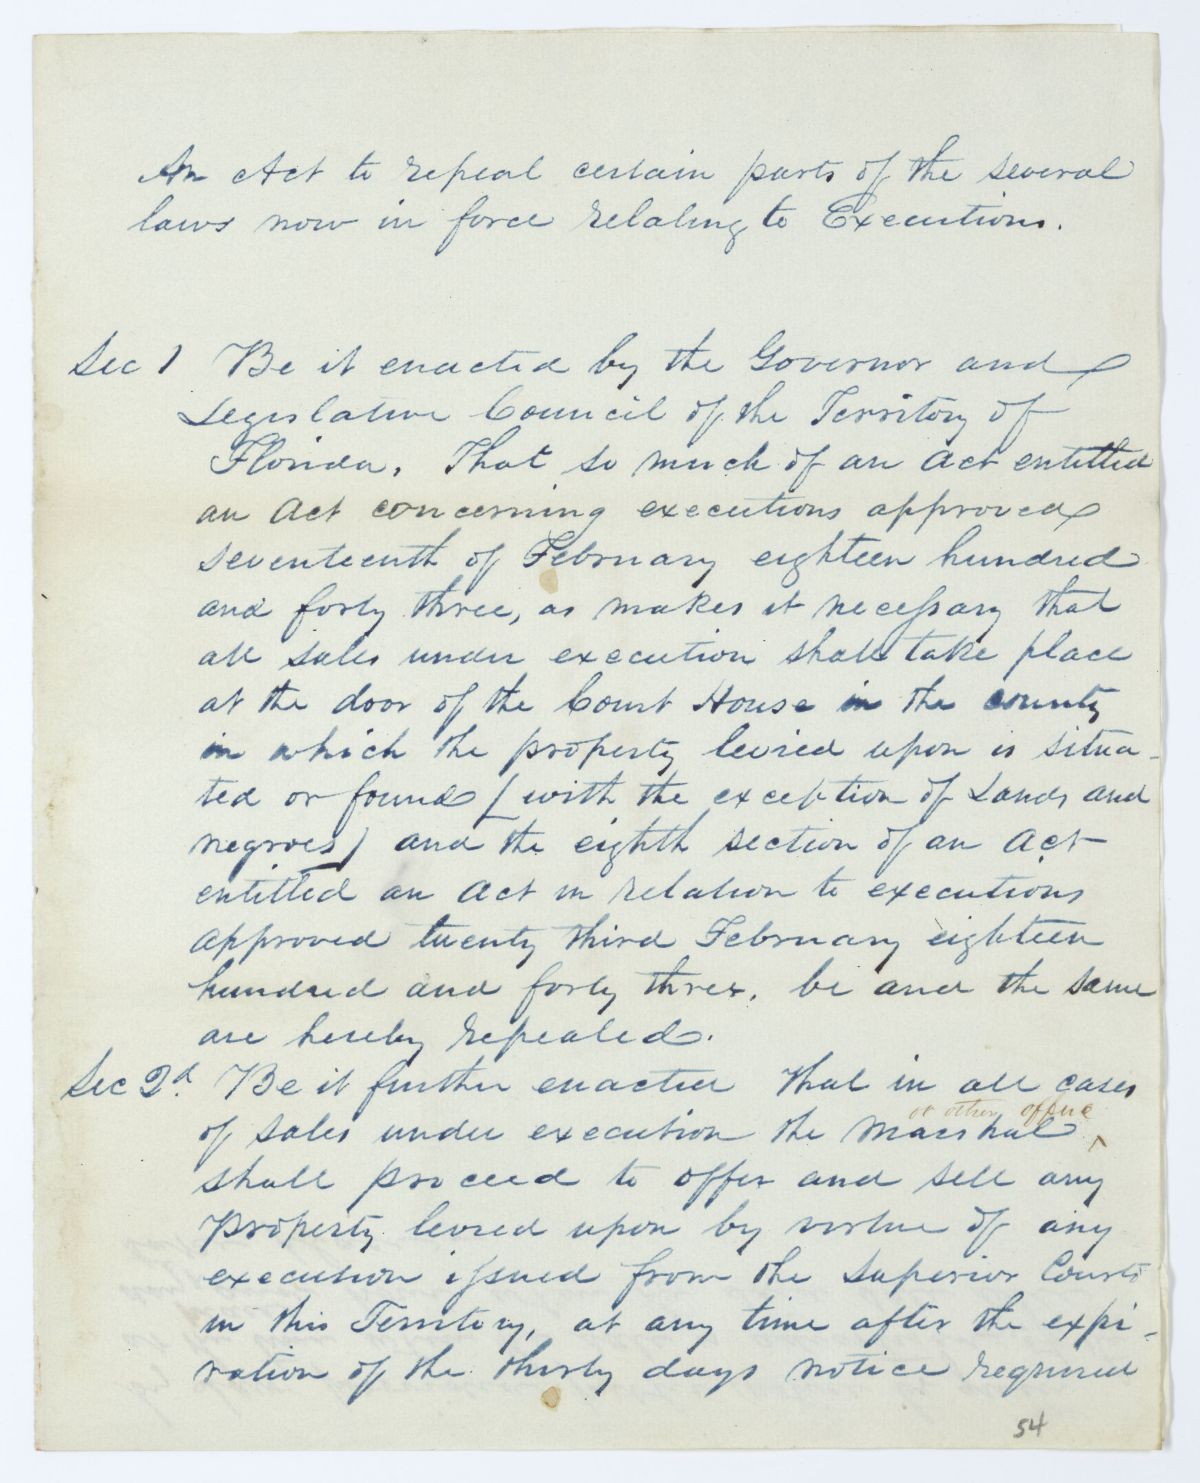 An Act to repeal certain parts of the several
laws now in force relating to Executions.
Sec 1 Be it enacted by the Governor and
Legislative Council of the Territory of
Florida, That so much of an Act entitled
an Act concerning executions approved
seventeenth of February eighteen hundred
and forty three, as makes it necessary that
all sales under execution shall take place
at the door of the Court House in the county
in which the property levied upon is situa-
ted or found (with the exception of Lands and
negroes) and the eighth section of an Act
entitled an Act in relation to executions
approved twenty third February eighteen
hundred and forty three, be and the same
are hereby repealed.
Sec 2d. Be it further enacted That in all cases
or other office
of sales under execution the Marshal ^
shall proceed to offer and sell any
Property levied upon by virtue of any
execution issued from the Superior Courts
in this Territory, at any time after the expi-
ration of the thirty days notice required
54